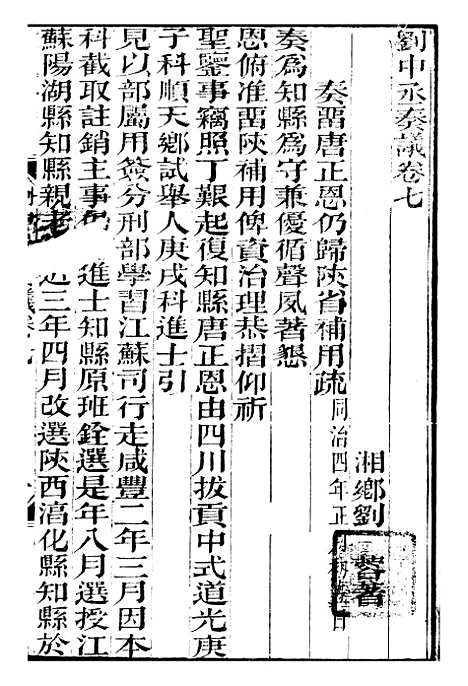 劉中丞奏議卷七
湘鄉劉蓉著
奏留唐正恩仍歸陝省補用疏 同治四年正月 日
奏為知縣為守兼優循聲夙著懇
恩俯准留陝補用俾資治理恭摺仰祈
聖鑒事竊照丁艱起復知縣唐正恩由四川拔貢中式道光庚
子科順天鄉試舉人庚戌科進士引
見以部屬用簽分刑部學習江蘇司行走咸豐二年三月因本
科截取註銷主事 進士知縣原班銓選是年八月選授江
蘇陽湖縣知縣親老 近三年四月改選陝西湻化縣知縣於